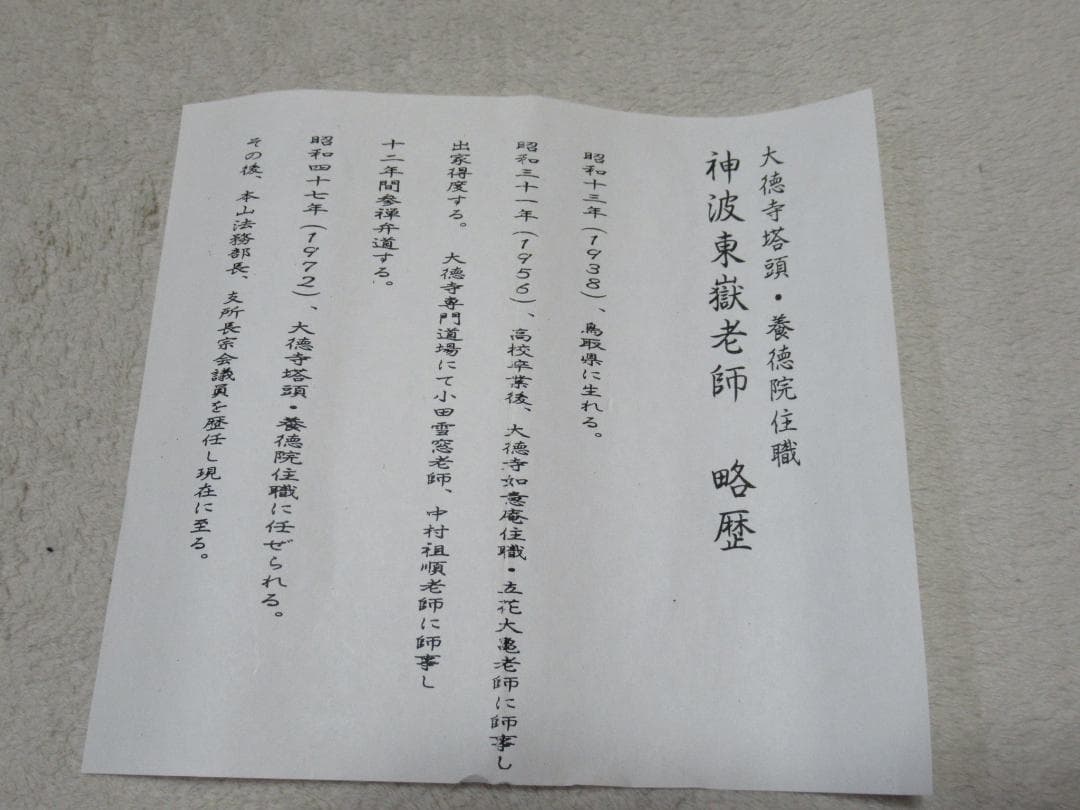 大徳寺塔頭・養徳院住職
神波東嶽老師　略歴
昭和十三年（1938）、鳥取県に生れる。
昭和三十一年（1956）、高校卒業後、大徳寺如意庵住職・立花大亀老師に師事し
出家得度する。　大徳寺専門道場にて小田雪窓老師、中村祖順老師に師事し
十二年間参禅弁道する。
昭和四十七年（1972）、大徳寺塔頭・養徳院住職に任ぜられる。
その後、本山法務部長、支所長宗会議員を歴任し現在に至る。